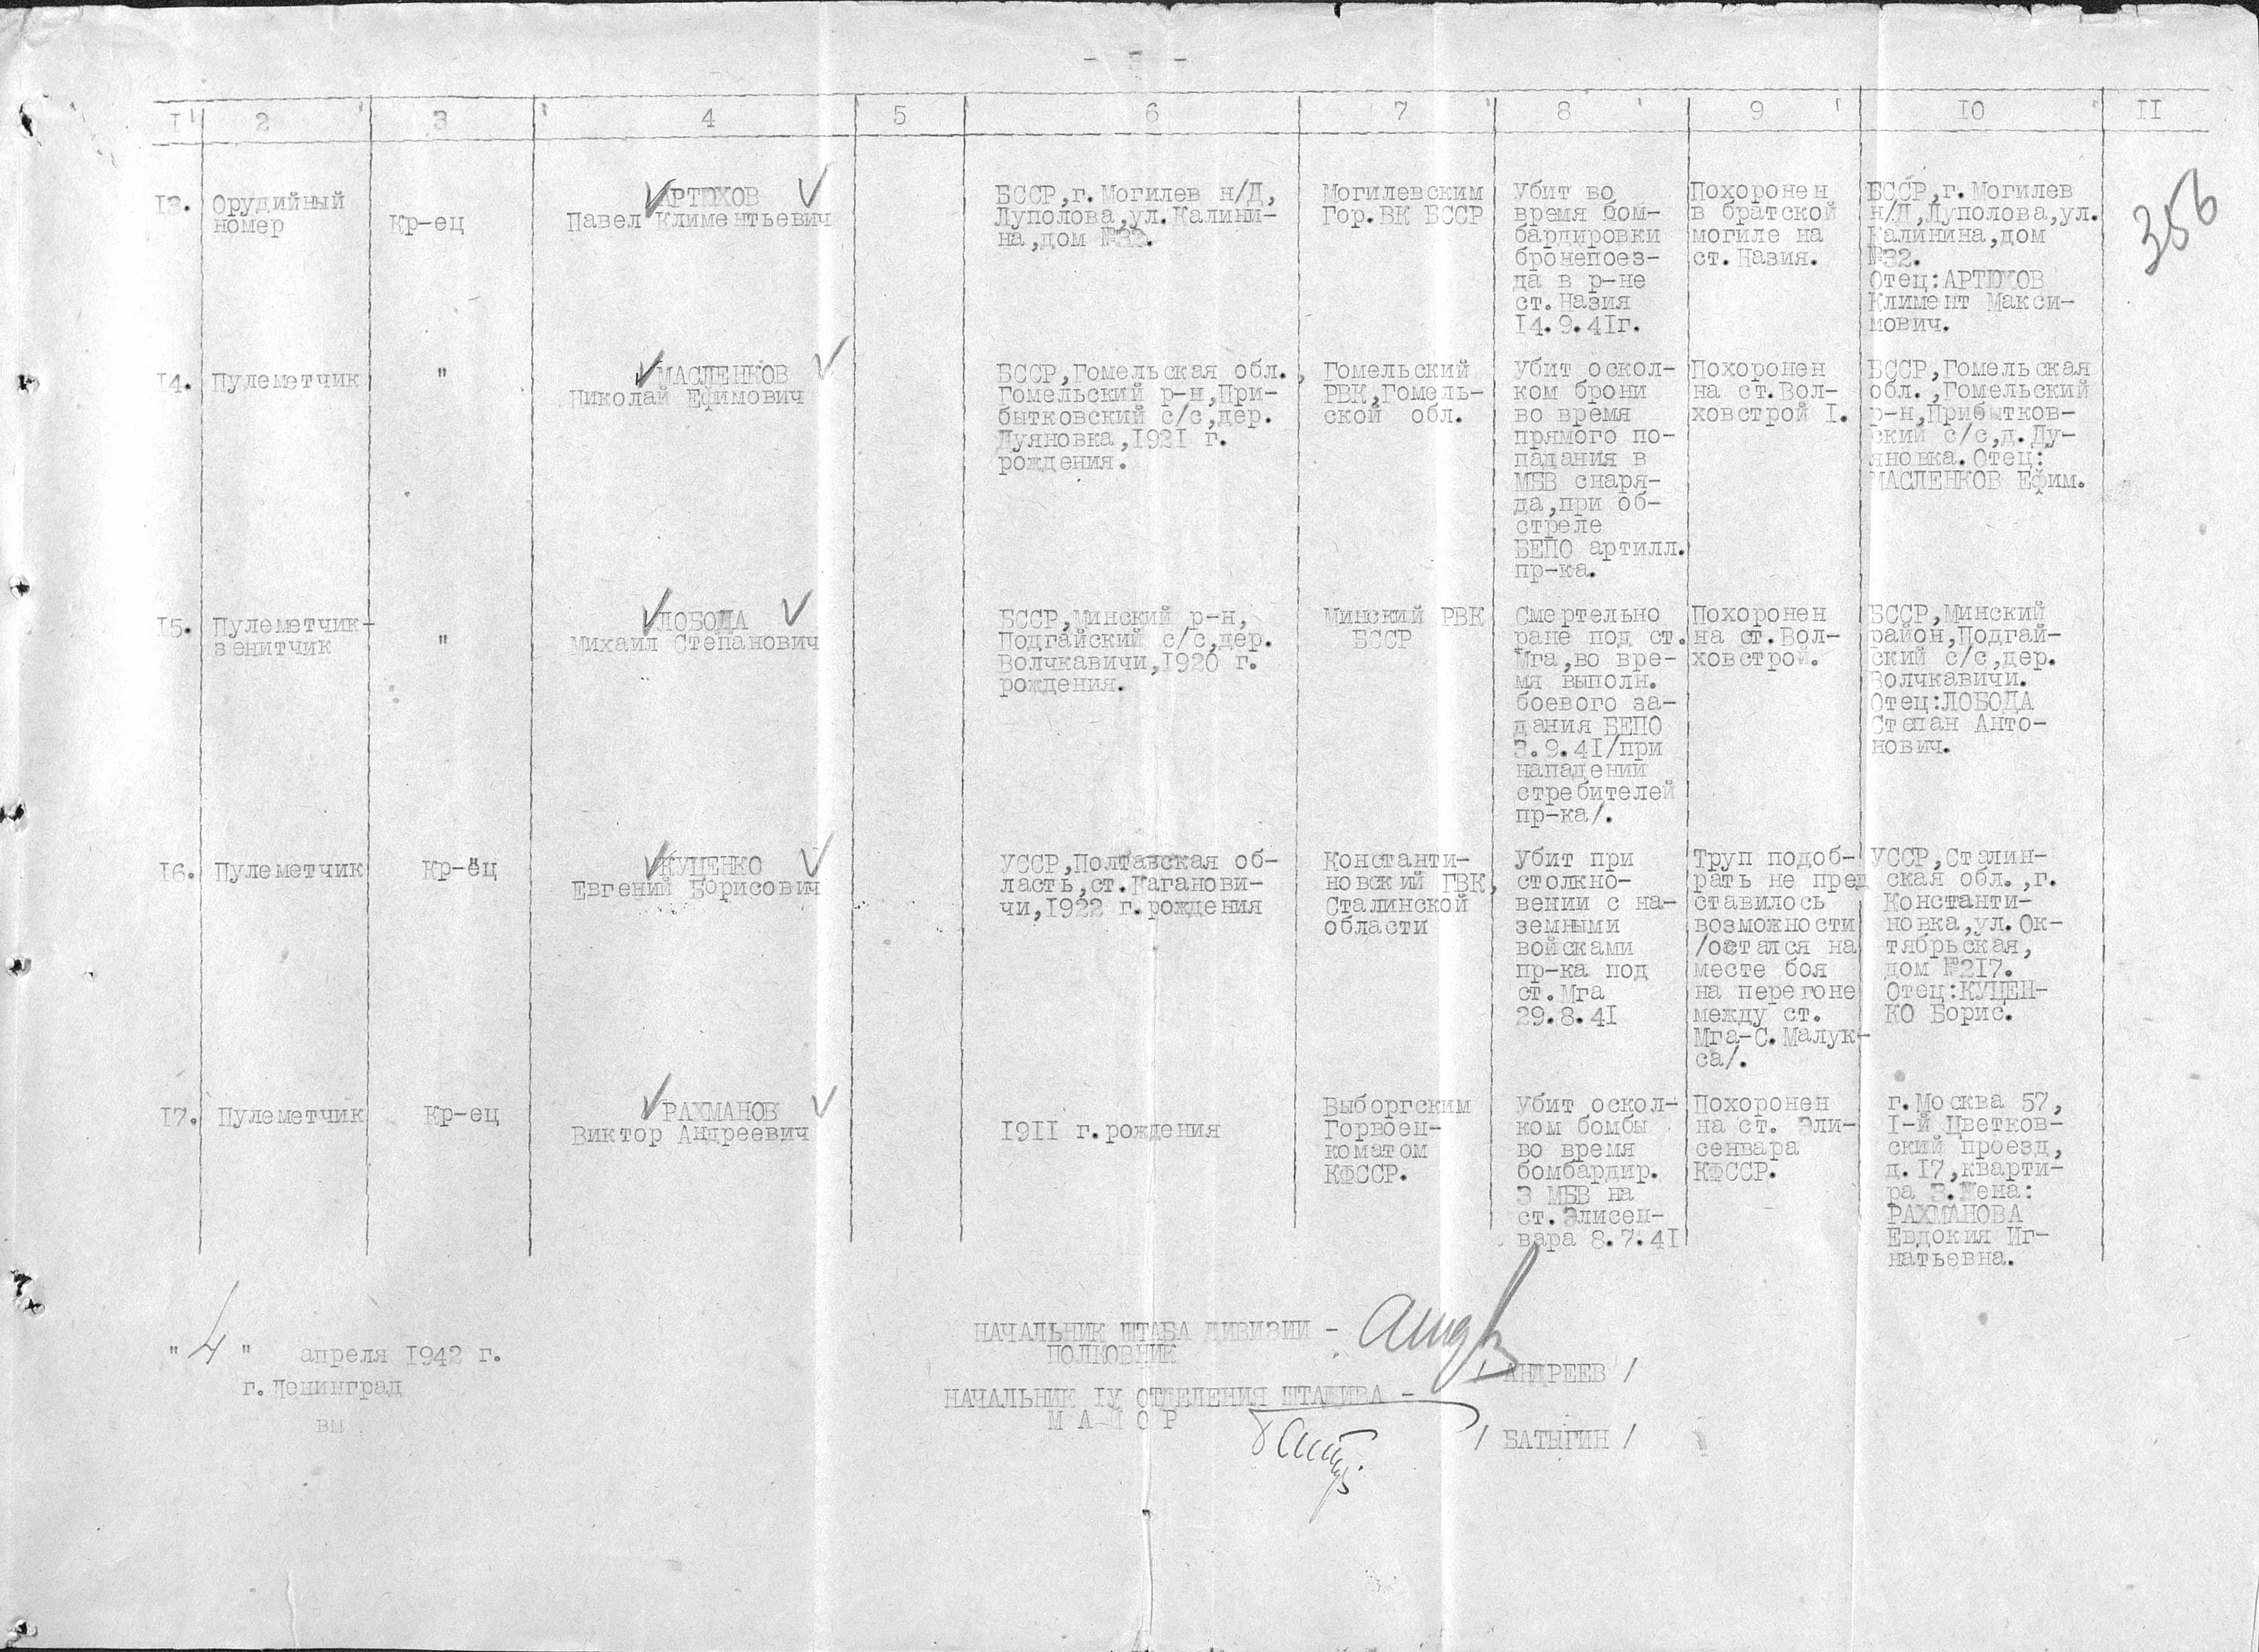 - 5 -
I 2 3 4 5 6 7 8 9 10 II
13.
Орудийный
номер
Кр-ец
АРТЮХОВ
Павел Климентьевич
БССР,г.Могилев н/Д,
Луполова,ул.Калини-
на,дом №32.
Могилевским
Гор.ВК БССР
Убит во
время бом-
бардировки
бронепоез-
да в р-не
ст.Назия
14.9.41г.
Похоронен
в братской
могиле на
ст.Назия.
БССР,г.Могилев
н/Д,Луполова,ул.
Калинина,дом
№32.
Отец:АРТЮХОВ
Климент Макси-
мович.
356
14.
Пулеметчик
"
МАСЛЕНКОВ
Николай Ефимович
БССР,Гомельская обл.,
Гомельский р-н,При-
бытковский с/с,дер.
Дуяновка,1921 г.
рождения.
Гомельский
РВК,Гомель-
ской обл.
Убит оскол-
ком брони
во время
прямого по-
падания в
МБВ снаря-
да,при об-
стреле
БЕПО артилл.
пр-ка.
Похоронен
на ст.Вол-
ховстрой I.
БССР,Гомельская
обл.,Гомельский
р-н,Прибытков-
ский с/с,д.Ду-
яновка.Отец:
МАСЛЕНКОВ Ефим.
15.
Пулеметчик-
зенитчик
"
ЛОБОДА
Михаил Степанович
БССР,Минский р-н,
Подгайский с/с,дер.
Волчкавичи,1920 г.
рождения.
Минский РВК
БССР
Смертельно
ране под ст.
Мга,во вре-
мя выполн.
боевого за-
дания БЕПО
3.9.41/при
нападении
стребителей
пр-ка/.
Похоронен
на ст.Вол-
ховстрой.
БССР,Минский
район,Подгай-
ский с/с,дер.
Волчкавичи.
Отец:ЛОБОДА
Степан Анто-
нович.
16.
Пулеметчик
Кр-ец
КУЦЕНКО
Евгений Борисович
УССР,Полтавская об-
ласть,ст.Каганови-
чи,1922 г.рождения
Константи-
новский ГВК,
Сталинской
области
Убит при
столкно-
вении с на-
земными
войсками
пр-ка под
ст.Мга
29.8.41
Труп подоб-
рать не пред
ставилось
возможности
/остался на
месте боя
на перегоне
между ст.
Мга-С.Малук-
са/.
УССР,Сталин-
ская обл.,г.
Константи-
новка,ул.Ок-
тябрьская,
дом №217.
Отец:КУЦЕН-
КО Борис.
17.
Пулеметчик
Кр-ец
РАХМАНОВ
Виктор Андреевич
1911 г.рождения
Выборгским
Горвоен-
коматом
КФССР.
Убит оскол-
ком бомбы
во время
бомбардир.
3 МБВ на
ст.Элисен-
вара 8.7.41
Похоронен
на ст. Эли-
сенвара
КФССР.
г.Москва 57,
I-й Цветков-
ский проезд,
д.17,кварти-
ра 3.Жена:
РАХМАНОВА
Евдокия Иг-
натьевна.
"4" апреля 1942 г.
г.Ленинград
вм
НАЧАЛЬНИК ШТАБА ДИВИЗИИ -
ПОЛКОВНИК
/ АНДРЕЕВ /
НАЧАЛЬНИК IУ ОТДЕЛЕНИЯ ШТАДИВА -
МАЙОР
/ БАТЫГИН /